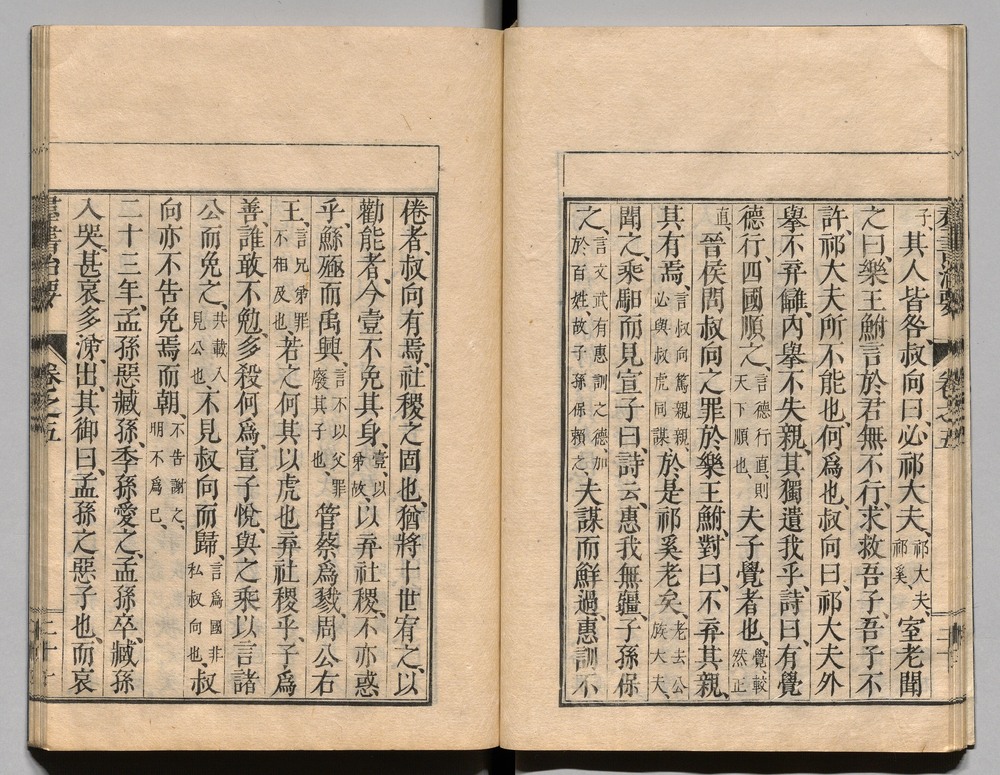 子、其人皆咎、叔向曰、必祁大夫、祁大夫、祁奚、室老聞
之曰、樂王鮒言於君無不行、求救吾子、吾子不
許、祁大夫所不能也、何爲也、叔向曰、祁大夫外
擧不弃讎、內擧不失親、其獨遺我乎、詩曰、有覺
德行、四國順之、言德行直、則天下順也、夫子覺者也、覺較然正
直、晉侯問叔向之罪於樂王鮒、對曰、不弃其親、
其有焉、言叔向篤親親、必與叔虎同謀、於是祁奚老矣、老去公族大夫、
聞之、乘馹而見宣子曰、詩云、惠我無疆、子孫保
之、言文武有惠訓之德、加於百姓、故子孫保賴之、夫謀而鮮過、惠訓不
倦者、叔向有焉、社稷之固也、猶將十世宥之、以
勸能者、今壹不免其身、壹、以弟故、以弃社稷、不亦惑
乎、鯀殛而禹興、言不以父罪廢其子也、管蔡爲戮、周公右
王、言兄弟罪不相及也、若之何其以虎也弃社稷乎、子爲
善、誰敢不勉、多殺何爲、宣子悅、與之乘以言諸
公而免之、共載入見公也、不見叔向而歸、言爲國非私叔向也、叔
向亦不告免焉而朝、不告謝之、明不爲已、
二十三年、孟孫惡臧孫、季孫愛之、孟孫卒、臧孫
入哭、甚哀多涕、出、其御曰、孟孫之惡子也、而哀
卷之五